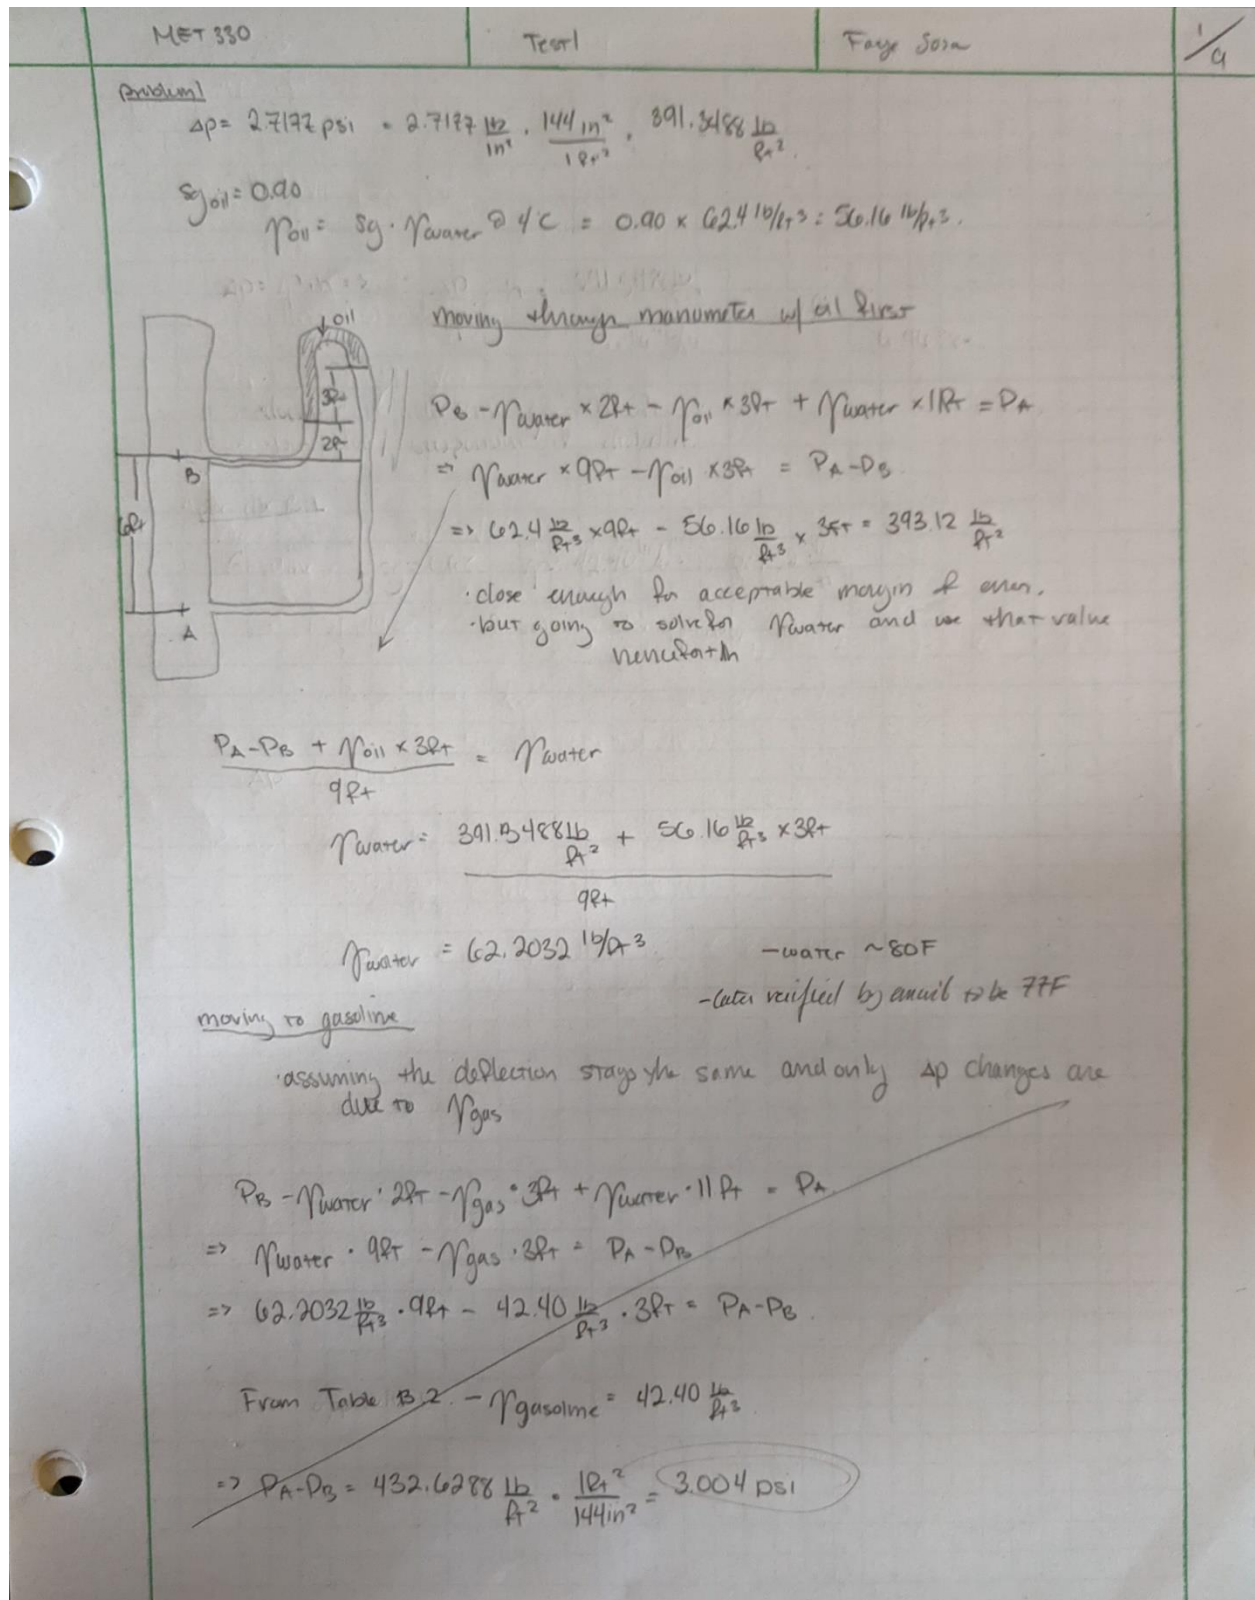 MET 330
Test 1
Faye Sosa
1/9
Problem 1
Δp = 2.7177 psi = 2.7177 lb/in² · 144 in²/1 ft² · 391.3488 lb/ft².
sg oil = 0.90
γoil = sg · γwater @ 4°C = 0.90 × 62.4 lb/ft³ = 56.16 lb/ft³.
moving through manometer w/ oil first
oil
3ft
2ft
B
6ft
A
PB - γwater × 2ft - γoil × 3ft + γwater × 11ft = PA
=> γwater × 9ft - γoil × 3ft = PA - PB.
=> 62.4 lb/ft³ × 9ft - 56.16 lb/ft³ × 3ft = 393.12 lb/ft²
· close enough for acceptable margin of error.
· but going to solve for γwater and use that value
henceforth
PA - PB + γoil × 3ft / 9ft = γwater
γwater = 391.3488 lb/ft² + 56.16 lb/ft³ × 3ft / 9ft
γwater = 62.2032 lb/ft³
- water ~80F
- later verified by email to be 77F
moving to gasoline
· assuming the deflection stays the same and only Δp changes are
due to γgas
PB - γwater · 2ft - γgas · 3ft + γwater · 11ft = PA
=> γwater · 9ft - γgas · 3ft = PA - PB
=> 62.2032 lb/ft³ · 9ft - 42.40 lb/ft³ · 3ft = PA - PB.
From Table B.2 - γgasoline = 42.40 lb/ft³.
=> PA - PB = 432.6288 lb/ft² · 1ft²/144in² = 3.004 psi